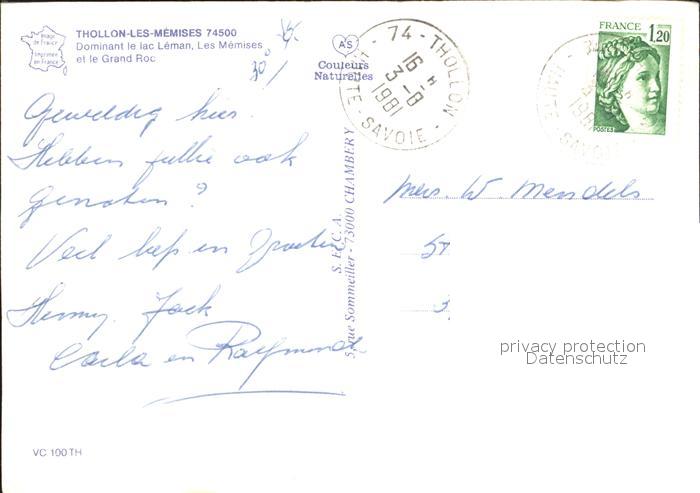 Image
de France
Imprimée
en France
THOLLON-LES-MÉMISES 74500
Dominant le lac Léman, Les Mémises
et le Grand Roc
AS
Couleurs
Naturelles
74 - THOLLON
16 H
3 - 8
1981
HAUTE - SAVOIE
FRANCE
1,20
POSTES
Geweldig hier.
Hebben jullie ook
genoten?
Veel liefs en Groeten
Henny, Jack
Carla en Raymond
Mevr. W. Mendels
S.E.C.A.
rue Sommeiller - 73000 CHAMBERY
privacy protection
Datenschutz
VC 100 TH